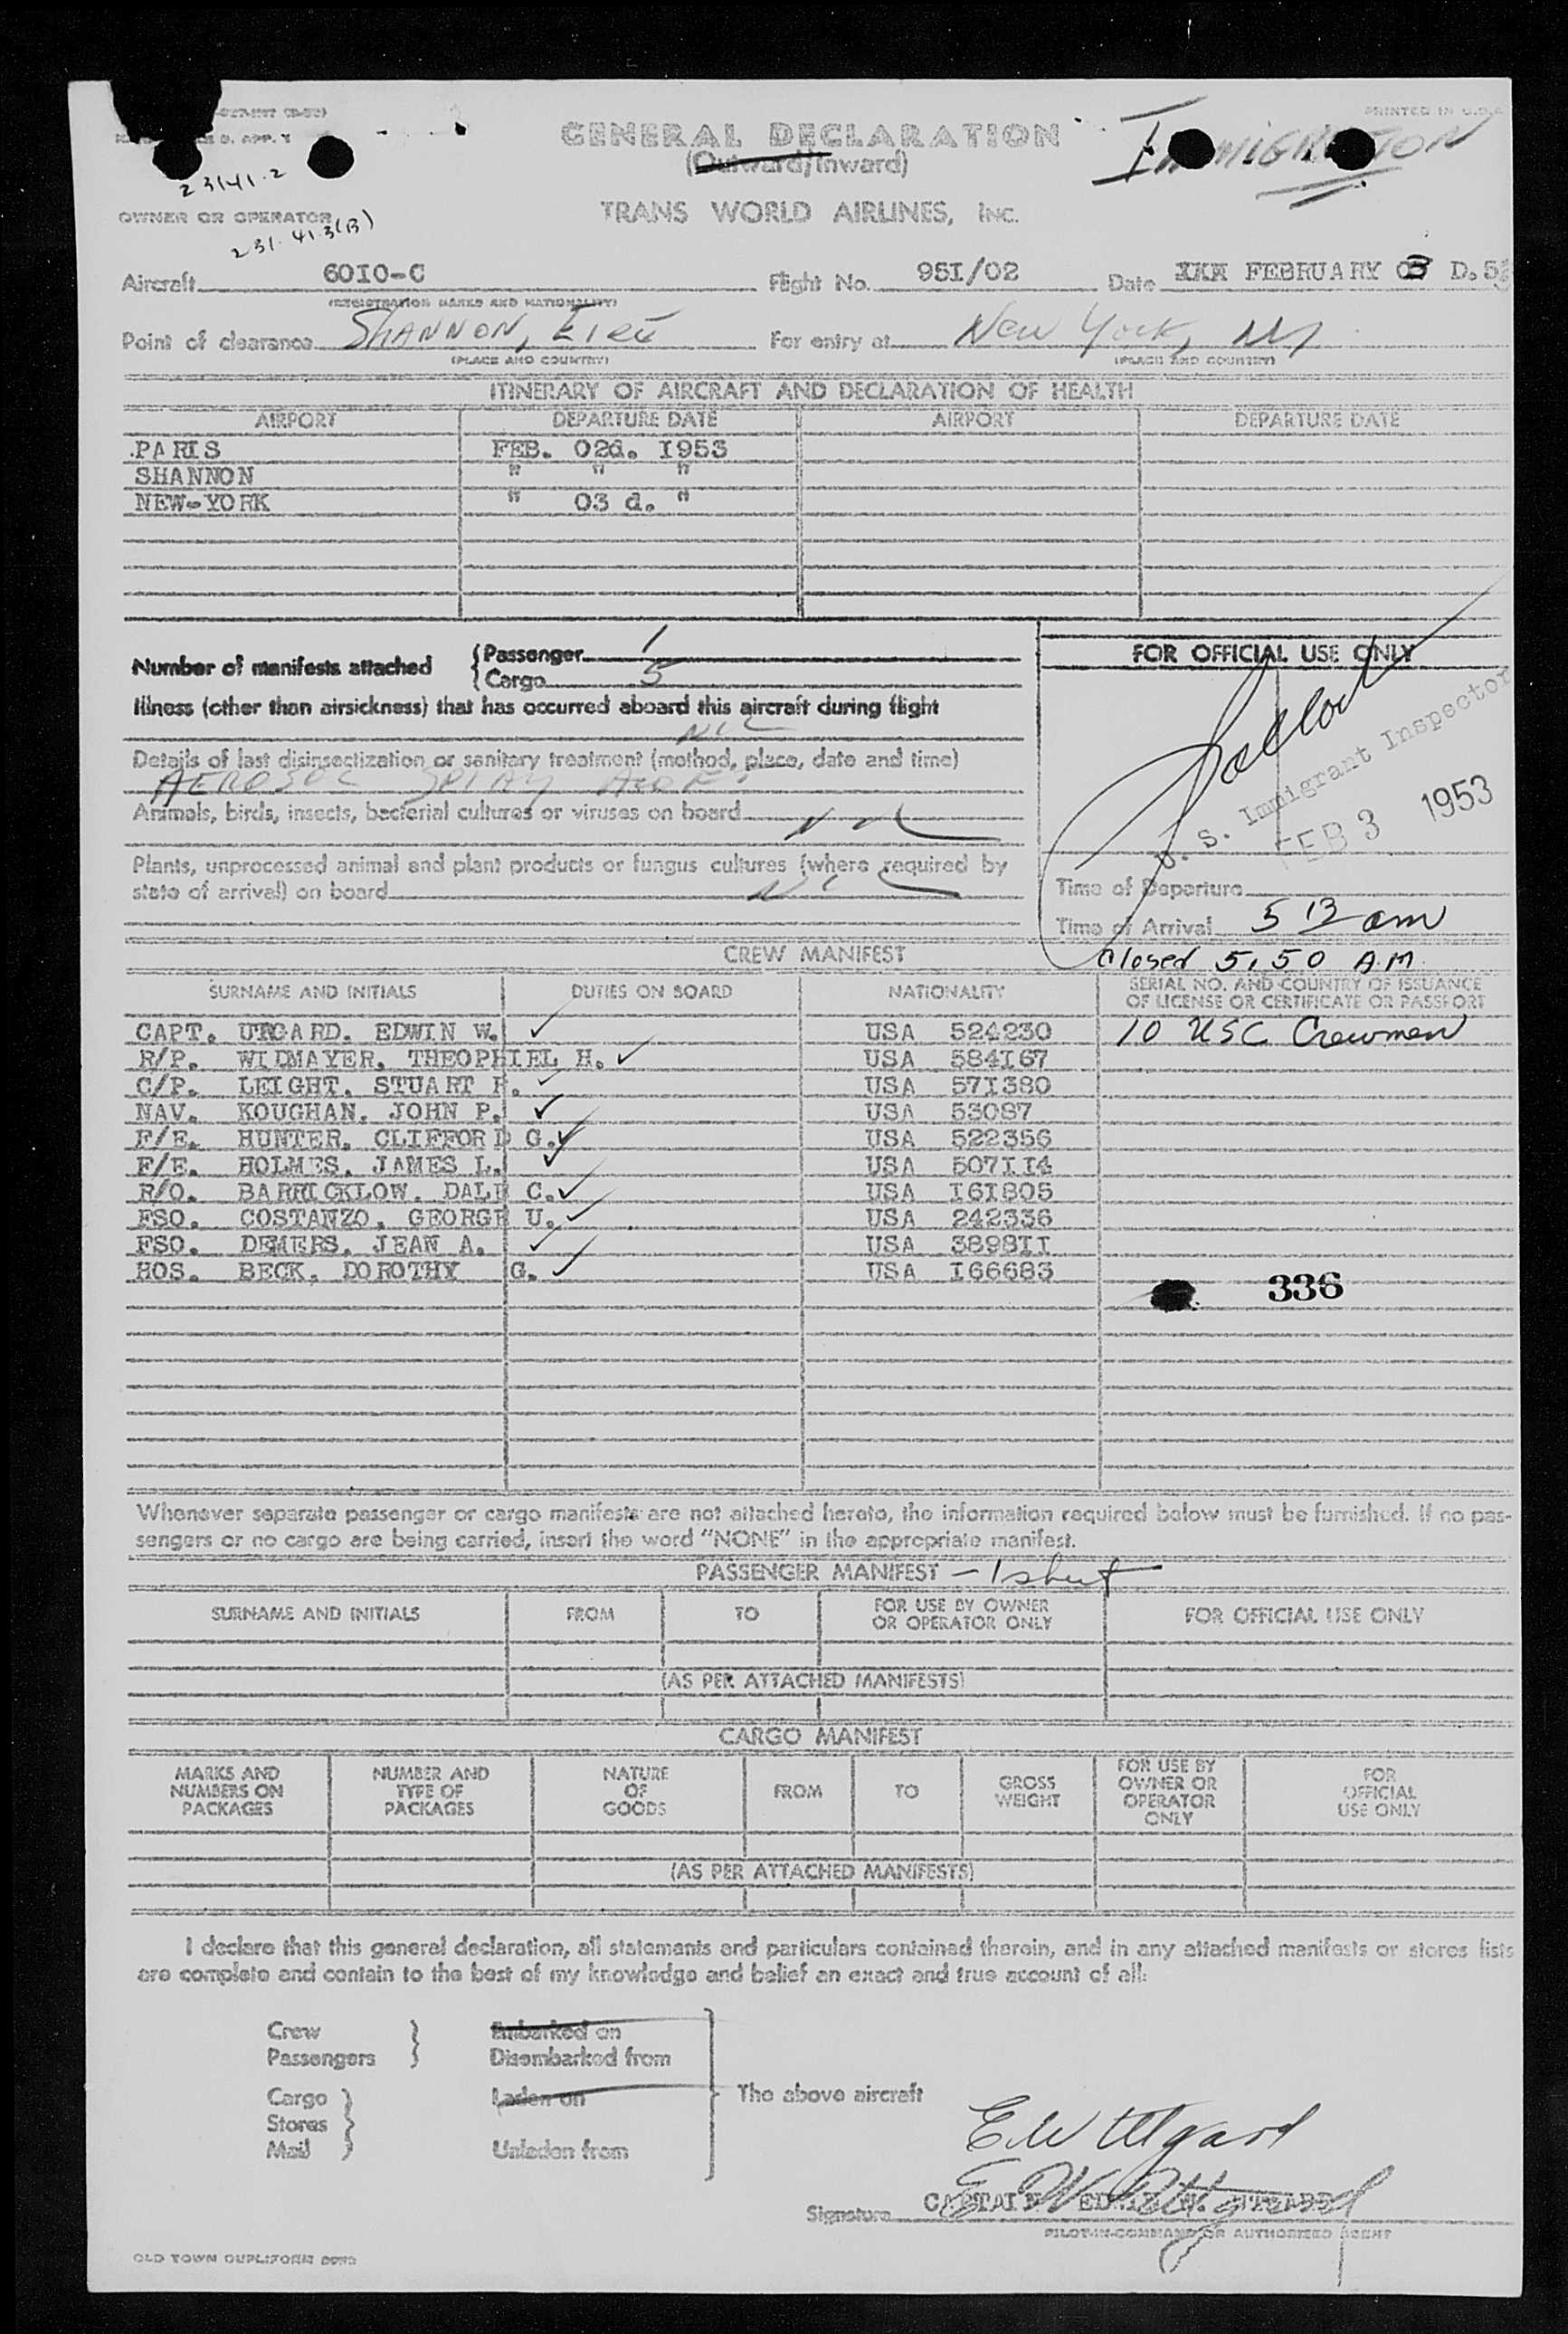 PRINTED IN U.S.A.
GENERAL DECLARATION
(Outward/Inward)
IMMIGRATION
23141.2
OWNER OR OPERATOR
231.41.3(B)
TRANS WORLD AIRLINES, INC.
Aircraft 6010-C Flight No. 951/02 Date XXX FEBRUARY 03 D. 53
(REGISTRATION MARKS AND NATIONALITY)
Point of clearance SHANNON, EIRE For entry at New York, NY
(PLACE AND COUNTRY) (PLACE AND COUNTRY)
ITINERARY OF AIRCRAFT AND DECLARATION OF HEALTH
AIRPORT DEPARTURE DATE AIRPORT DEPARTURE DATE
PARIS FEB. 02d. I953
SHANNON " " "
NEW-YORK " 03 d. "
Number of manifests attached { Passenger 1
Cargo 5
FOR OFFICIAL USE ONLY
Illness (other than airsickness) that has occurred aboard this aircraft during flight
NIL
Details of last disinsectization or sanitary treatment (method, place, date and time)
AEROSOL SPRAY
Animals, birds, insects, bacterial cultures or viruses on board NIL
Plants, unprocessed animal and plant products or fungus cultures (where required by
state of arrival) on board NIL
U. S. Immigrant Inspector
FEB 3 1953
Time of Departure
Time of Arrival 5 13 am
Closed 5.50 A.M.
CREW MANIFEST
SURNAME AND INITIALS DUTIES ON BOARD NATIONALITY SERIAL NO. AND COUNTRY OF ISSUANCE
OF LICENSE OR CERTIFICATE OR PASSPORT
CAPT. UTGARD. EDWIN W. USA 524230 10 USC Crewmen
R/P. WIDMAYER. THEOPHIEL H. USA 584I67
C/P. LEIGHT. STUART F. USA 57I380
NAV. KOUGHAN. JOHN P. USA 53087
F/E. HUNTER. CLIFFORD G. USA 522356
F/E. HOLMES. JAMES L. USA 507II4
R/O. BARRICKLOW. DALE C. USA I6I805
FSO. COSTANZO. GEORGE U. USA 242336
FSO. DEMERS. JEAN A. USA 3898II
HOS. BECK. DOROTHY G. USA I66683
336
Whenever separate passenger or cargo manifests are not attached hereto, the information required below must be furnished. If no pas-
sengers or no cargo are being carried, insert the word "NONE" in the appropriate manifest.
PASSENGER MANIFEST - 1 sheet
SURNAME AND INITIALS FROM TO FOR USE BY OWNER
OR OPERATOR ONLY FOR OFFICIAL USE ONLY
(AS PER ATTACHED MANIFESTS)
CARGO MANIFEST
MARKS AND
NUMBERS ON
PACKAGES NUMBER AND
TYPE OF
PACKAGES NATURE
OF
GOODS FROM TO GROSS
WEIGHT FOR USE BY
OWNER OR
OPERATOR
ONLY FOR
OFFICIAL
USE ONLY
(AS PER ATTACHED MANIFESTS)
I declare that this general declaration, all statements and particulars contained therein, and in any attached manifests or stores lists
are complete and contain to the best of my knowledge and belief an exact and true account of all:
Crew Embarked on
Passengers Disembarked from
Cargo Laden on The above aircraft
Stores
Mail Unladen from
E W Utgard
E W Utgard
Signature CAPTAIN EDWIN W. UTGARD
PILOT-IN-COMMAND OR AUTHORIZED AGENT
OLD TOWN DUPLIFORM